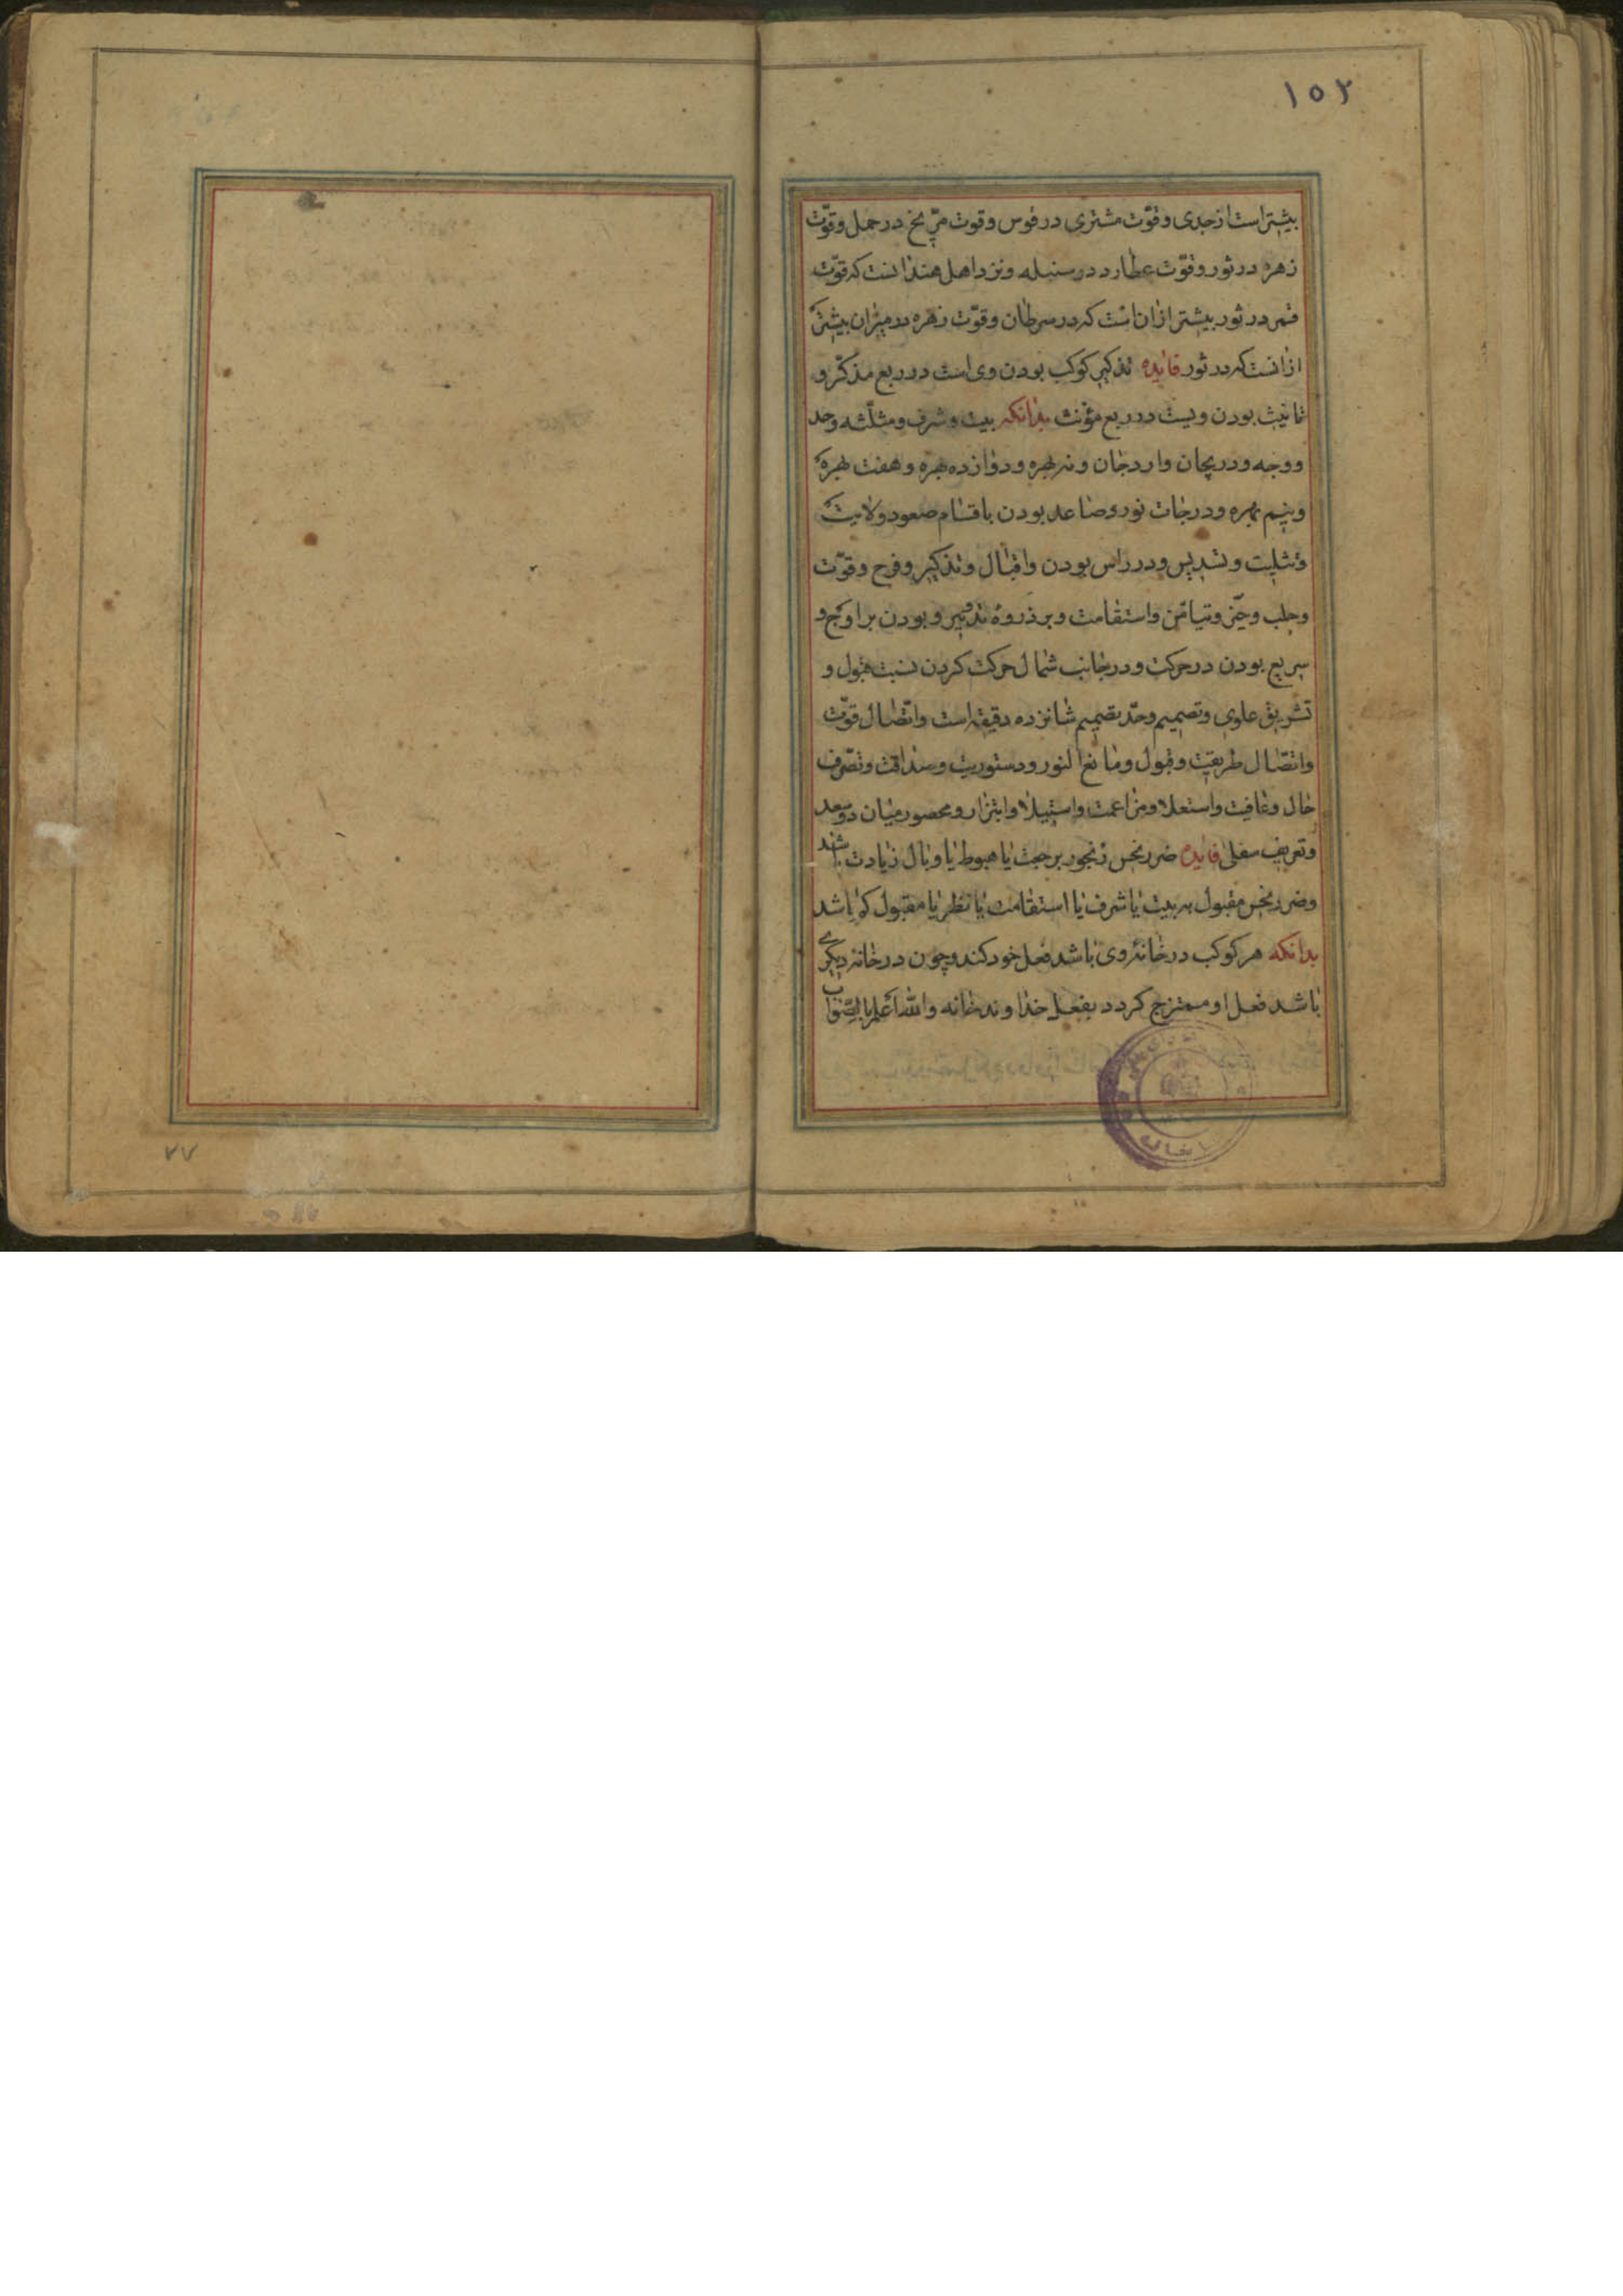 ۱۵۲
بیشتر است از جدی و قوّت مشتری در قوس و قوت مرّیخ در حمل و قوّت
زهره در ثور و قوّت عطارد در سنبله و نزد اهل هند انست که قوّت
قمر در ثور بیشتر از ان است که در سرطان و قوّت زهره در میزان بیشتر
از انست که در ثور فایده تذکیر کوکب بودن وی است در ربع مذکّر و
تانیث بودن ویست در ربع مؤنث بدانکه بیت و شرف و مثلّثه و حد
و وجه و دریجان و اردجان و نه بهره و دوازده بهره و هفت بهره
و نیم بهره و درجات نور و صاعد بودن باقسام صعود و لایت
و تثلیث و تسدیس و در راس بودن و اقبال و تذکیر و فرح و قوّت
و حلب و حیّز و تیامن و استقامت و بر ذروهٔ تدویر و بودن بر اوج و
سریع بودن در حرکت و در جانب شمال حرکت کردن نسبت قبول و
تشریق علوی و تصمیم و حدّ تصمیم شانزده دقیقه است و اتّصال قوّت
و اتّصال طریقیت و قبول و مانع النور و دستوریت و صداقت و تصرّف
حال و عافیت و استعلا و مزاعمت و استیلا و ابتزاز و محصور میان دو سعد
و تعریف سفلی فایده ضرر نحس رنجور برجعت یا هبوط یا وبال زیادت باشد
و ضرر نحس مقبول به بیت یا شرف یا استقامت یا نظر یا مقبول کم باشد
بدانکه هر کوکب در خانهٔ وی باشد فعل خود کند و چون در خانه دیکری
باشد فعل او ممتزج کردد بفعل خداوند خانه و الله اعلم بالصّواب
۷۷